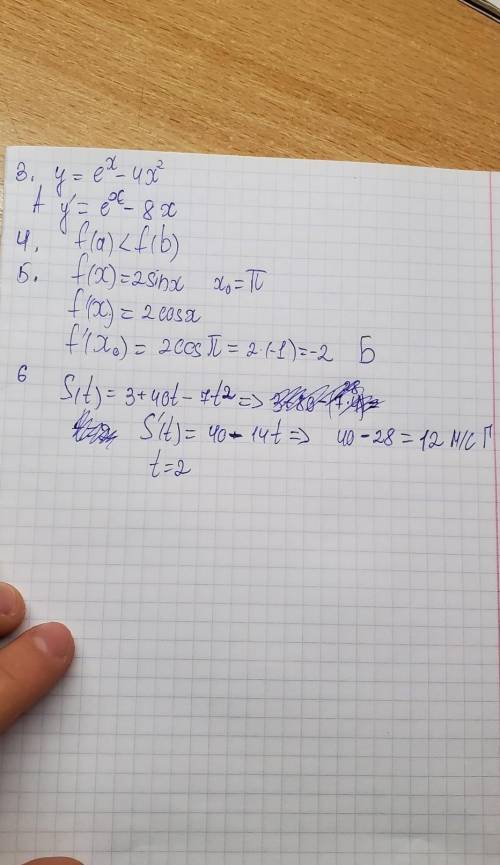 3. y = eˣ - 4x²
А y' = eˣ - 8x
4. f(a) < f(b)
5. f(x) = 2sinx x₀ = π
f'(x) = 2cosx
f'(x₀) = 2cosπ = 2·(-1) = -2 Б
6
S(t) = 3 + 40t - 7t² =>
S'(t) = 40 - 14t => 40 - 28 = 12 м/с Г
t = 2